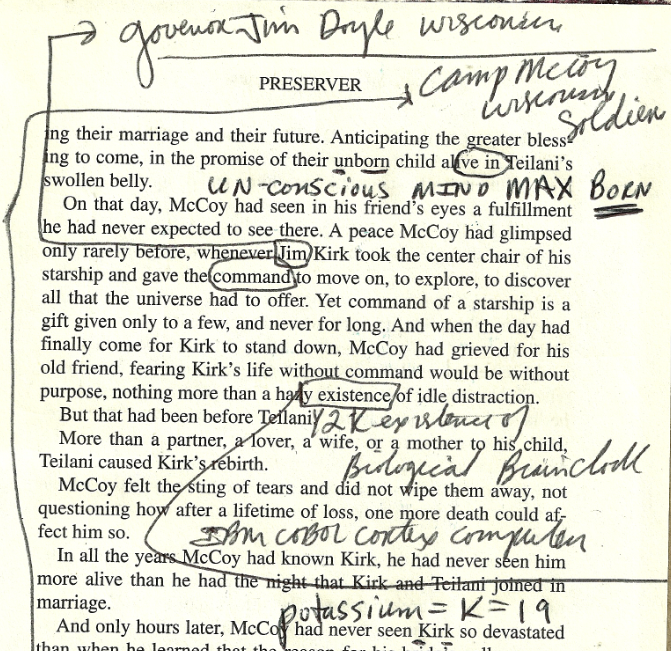 govenor Jim Doyle wisconsin
PRESERVER
Camp McCoy
wisconsin
Soldier
ing their marriage and their future. Anticipating the greater bless-
ing to come, in the promise of their unborn child alive in Teilani's
swollen belly.
UN-conscious MIND MAX BORN
On that day, McCoy had seen in his friend's eyes a fulfillment
he had never expected to see there. A peace McCoy had glimpsed
only rarely before, whenever Jim Kirk took the center chair of his
starship and gave the command to move on, to explore, to discover
all that the universe had to offer. Yet command of a starship is a
gift given only to a few, and never for long. And when the day had
finally come for Kirk to stand down, McCoy had grieved for his
old friend, fearing Kirk's life without command would be without
purpose, nothing more than a hazy existence of idle distraction.
But that had been before Teilani.
Y2K existence of
More than a partner, a lover, a wife, or a mother to his child,
Teilani caused Kirk's rebirth.
Biological Brain clock
McCoy felt the sting of tears and did not wipe them away, not
questioning how after a lifetime of loss, one more death could af-
fect him so.
IBM COBOL cortex computer
In all the years McCoy had known Kirk, he had never seen him
more alive than he had the night that Kirk and Teilani joined in
marriage.
potassium = K = 19
And only hours later, McCoy had never seen Kirk so devastated
than when he learned that the reason for his